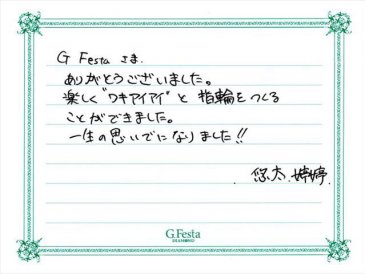 G Festa さま.
ありがとうございました。
楽しく"ワキアイアイ"と 指輪をつくる
ことができました。
一生の思いでになりました!!
悠太.婷婷.
G.Festa
DIAMOND